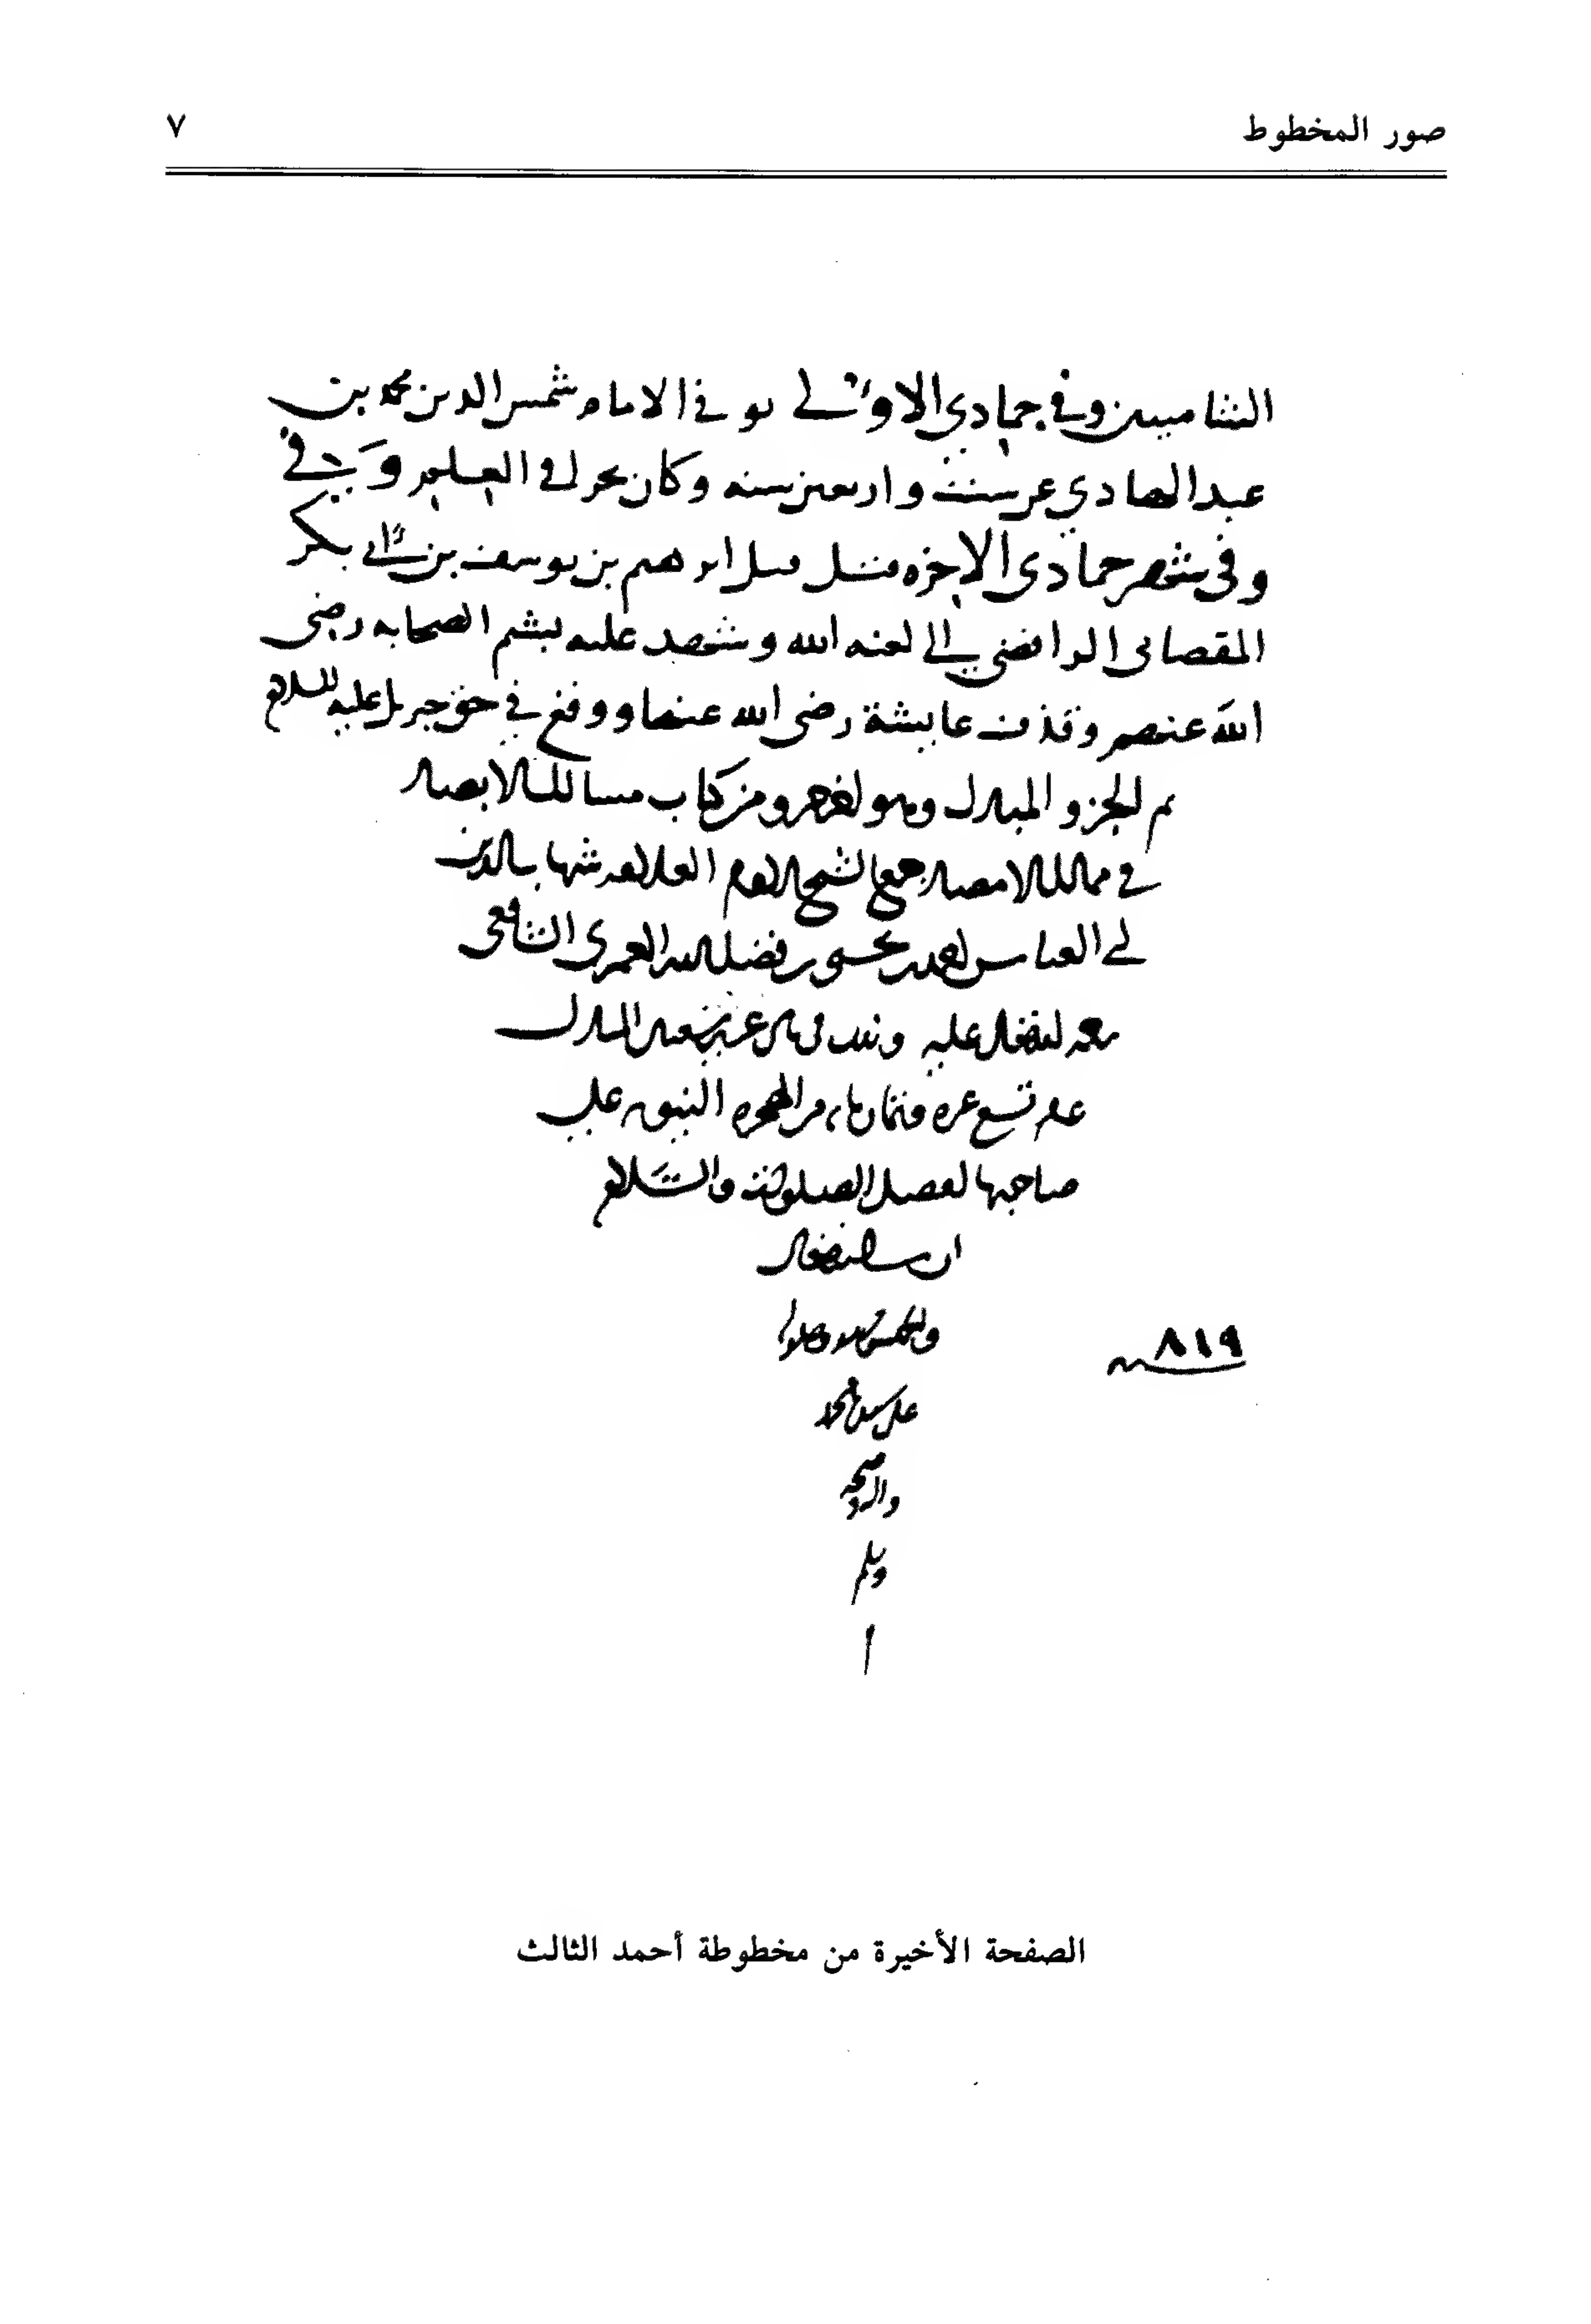 صور المخطوط
٧
الشاميين وفي جمادى الاولى توفي الامام شمس الدين محمد بن
عبد الهادي عن ست واربعين سنة وكان بحرا في العلم
وفي شهر جمادى الاخره قتل ابرهيم بن يوسف بن ابي بكر
المقصاتي الرافضي الى لعنه الله وشهد عليه بشتم الصحابه رضي
الله عنهم وقذف عايشة رضي الله عنها ووقع في حق جبريل عليه السلام
تم الجزو المبارك وهو من كتاب مسالك الابصار
في ممالك الامصار جمع الشيخ الامام العلامه شهاب الدين
ابي العباس احمد بن يحيى بن فضل الله العمري الشافعي
المبارك
عام تسع عشره وثمان مايه من الهجره النبويه على
صاحبها افضل الصلوات والسلام
والحمد لله وصلواته
على سيدنا محمد
واله وصحبه
وسلم
ا
٨١٩
الصفحة الأخيرة من مخطوطة أحمد الثالث